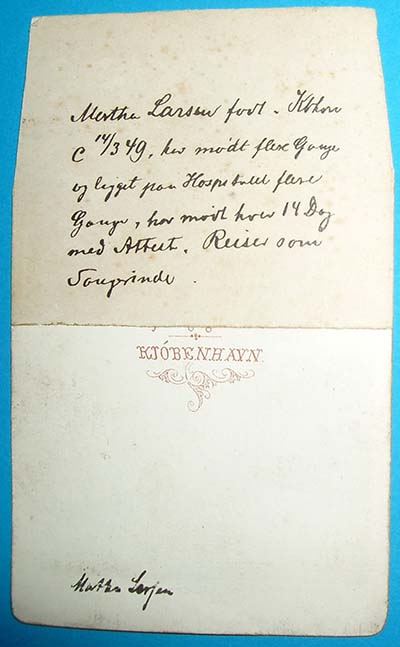 Martha Larsen født. Kbhvn
d 14/3 49, har mødt flere Gange
og ligget paa Hospitalet flere
Gange, har mødt hver 14 Dag
med Attest. Reiser som
Sangerinde.
KJÓBENHAVN.
Martha Larsen